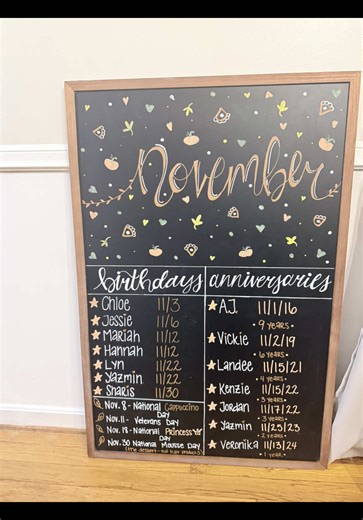 November
birthdays
Chloe 11/3
Jessie 11/6
Mariah 11/12
Hannah 11/12
Lyn 11/22
Yazmin 11/22
Sharis 11/30
Nov. 8 - National Cappuccino
Day
Nov. 11 - Veterans Day
Nov. 18 - National Princess
Day
Nov. 30 National Mousse Day
(the dessert - not hair products)
anniversaries
A.J. 11/1/16
• 9 years •
Vickie 11/2/19
• 6 years •
Landee 11/15/21
• 4 years •
Kenzie 11/15/22
• 3 years •
Jordan 11/17/22
• 3 years •
Yazmin 11/25/23
• 2 years •
Veronika 11/13/24
• 1 year •